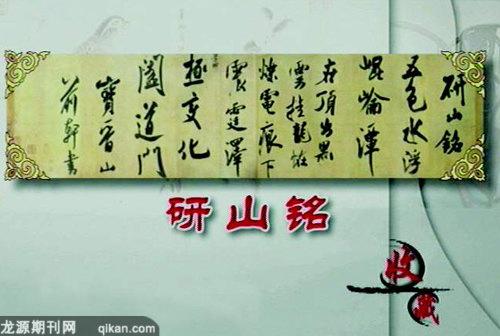 研山銘
五色水浮
崐崘潭
在頂出黑
雲挂龍怪
爍電痕下
震霆澤
極變化
闔道門
寶晉山
前軒書
研山铭
收藏
龙源期刊网 qikan.com